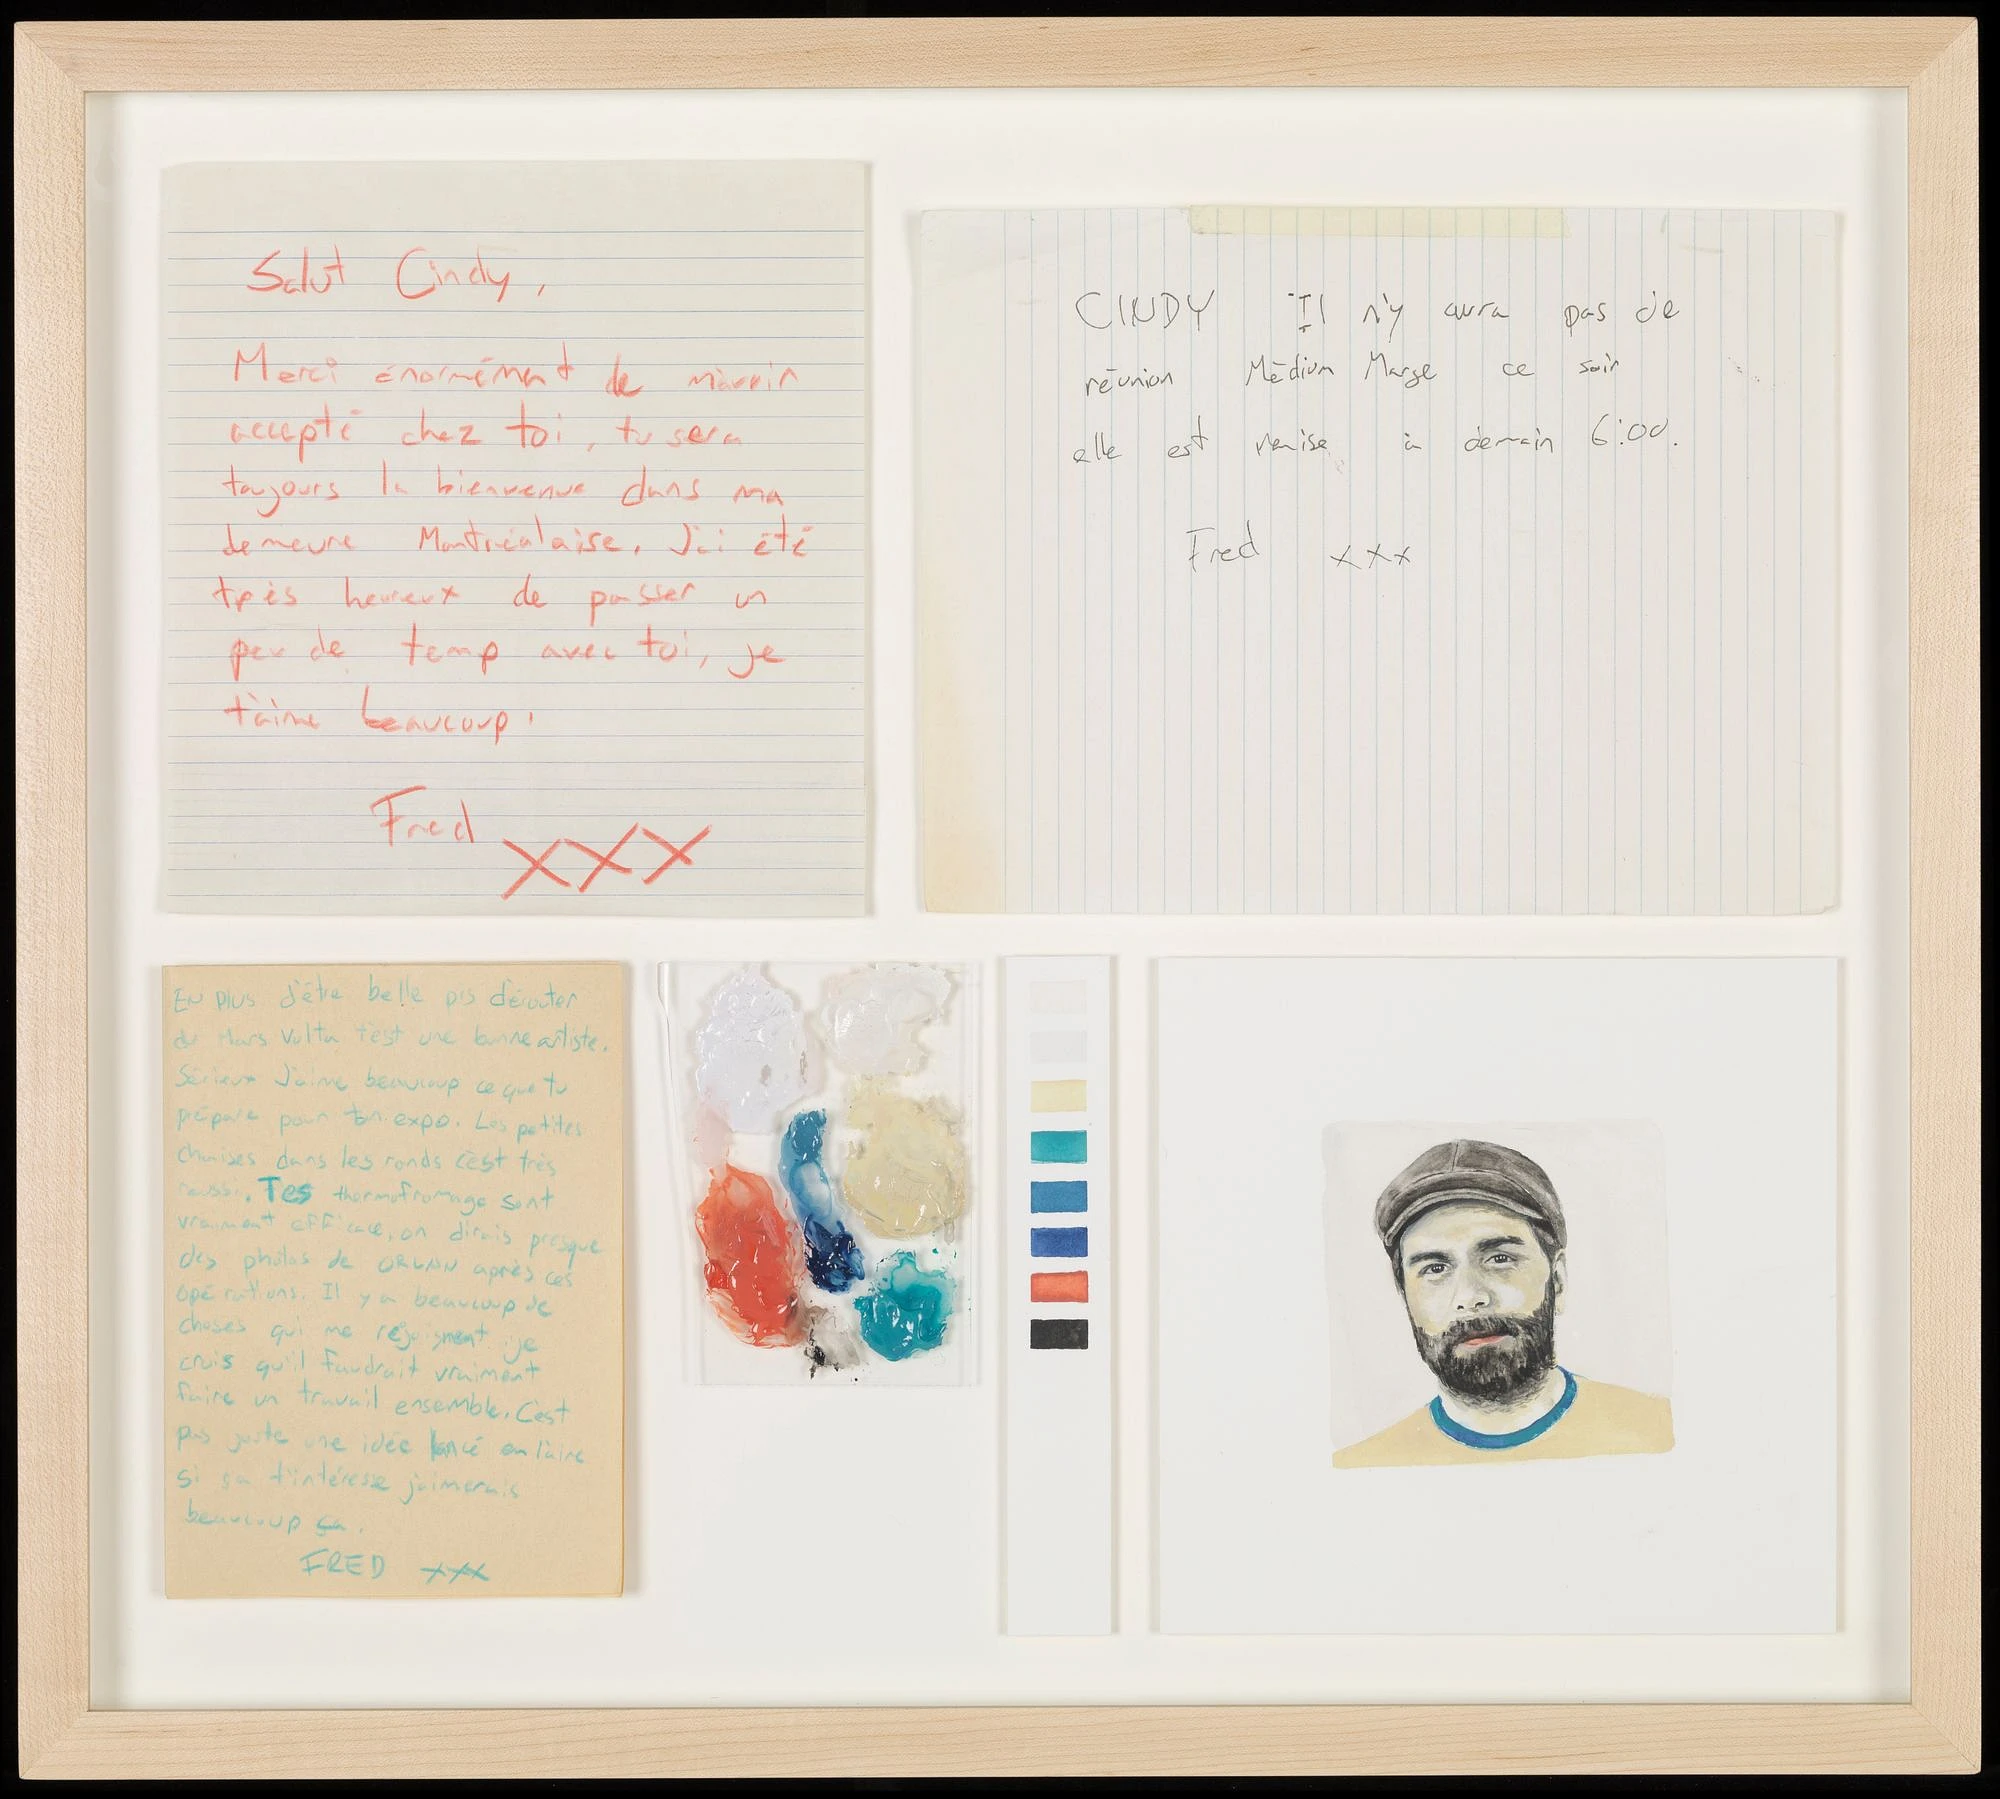 Salut Cindy,
Merci énormément de m'avoir
accepté chez toi, tu sera
toujours la bienvenue dans ma
demeure Montréalaise. J'ai été
très heureux de passer un
peu de temp avec toi, je
t'aime beaucoup.
Fred XXX
CINDY Il n'y aura pas de
réunion Médium Marge ce soir
elle est remise à demain 6:00.
Fred xxx
EN PLUS d'être belle pis d'écouter
du Mars Volta t'est une bonne artiste.
Sérieux J'aime beaucoup ce que tu
prépare pour ton expo. Les petites
chaises dans les ronds c'est très
réussi. Tes thermofromage sont
vraiment efficace, on dirais presque
des photos de ORLAN après ces
opérations. Il y a beaucoup de
choses qui me rejoignent je
crois qu'il faudrait vraiment
faire un travail ensemble. C'est
pas juste une idée lancé en l'aire
si ça t'intéresse j'aimerais
beaucoup ça.
FRED xxx